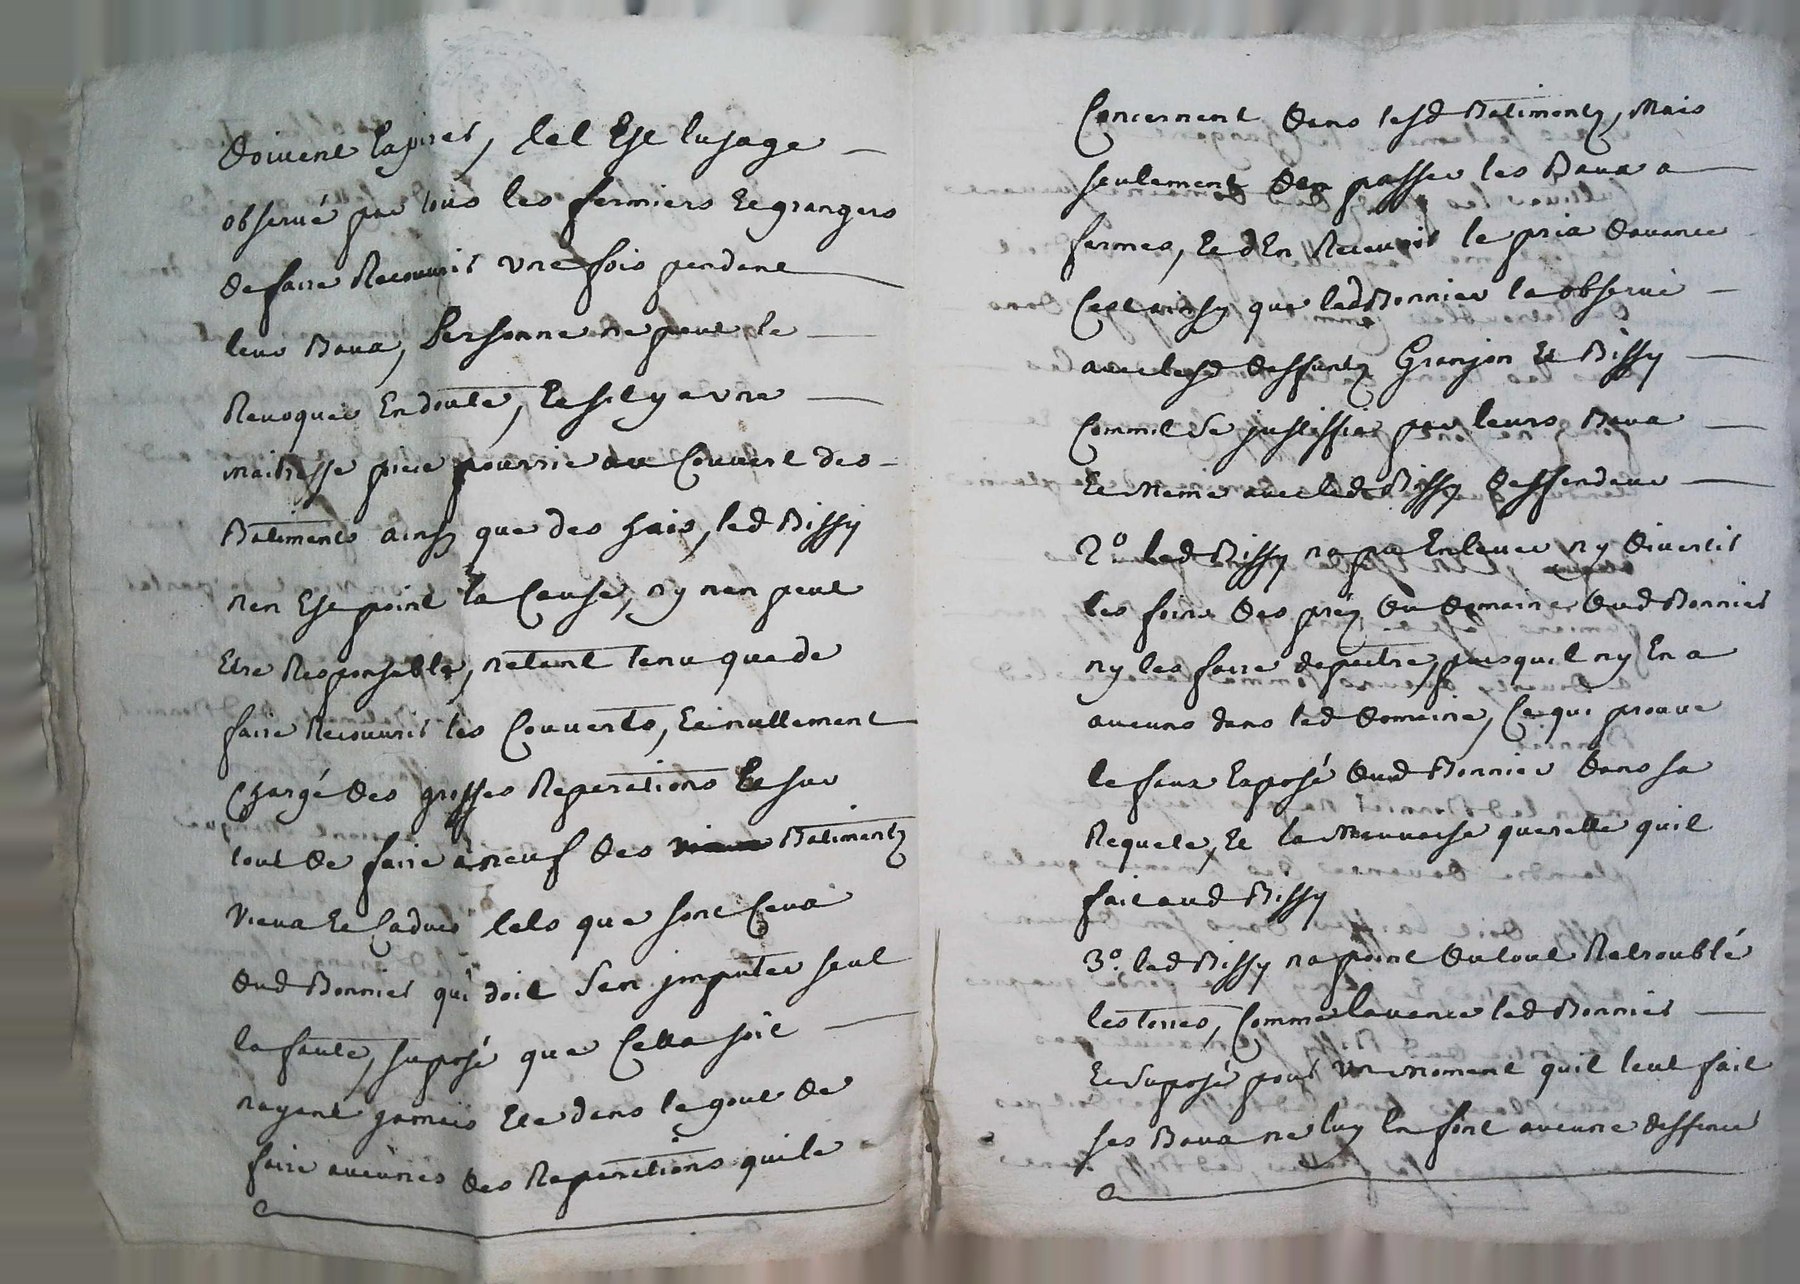 doivent Expirer, tel Est lusage
observé par tous les fermiers Et grangers
de faire Recouvrir une fois pendant
leur Baux, Personne ne peut le
Revoquer En doute, Et sil y a une
maitresse piece pourrie au Couvert des
Batiments ainsy que des hais, led Bissy
nen Est point la Cause, ny nen peut
Etre Responsable, netant tenu que de
faire Recouvrir les Couverts, Et nullement
Chargé des grosses Reparations Et sur
tout de faire a neuf des Batimentz
vieux Et Caducs tels que sont Ceux
dud Bonnier qui doit sen jmputer seul
la faute, suposé que Cella soit
nayant jamais Ete dans le gout de
faire aucunes des Reparations qui le
Concernent dans lesd Batimentz, Mais
seulement den passer les Baux a
fermes, Et dEn Recevoir le prix davance
Cest ainsy que led Bonnier la observé
avec lesd deffuntz Granjon Et Bissy
Comm il se justiffie par leurs Baux
Et Meme avec led Bissy deffendeur
2º. led Bissy na pu Enlever ny divertir
les foins des prez du domaine dud Bonnier
ny les faire depaitre, puis quil ny En a
aucuns dans led domaine, Ce qui prouve
le faux Exposé dud Bonnier dans sa
Requete, Et la Mauvaise querelle quil
fait aud Bissy
3º. led Bissy na point du tout Retroublé
les terres, Comme lavance led Bonnier
Et suposé pour un moment quil leut fait
ses Baux ne luy En font aucune deffence